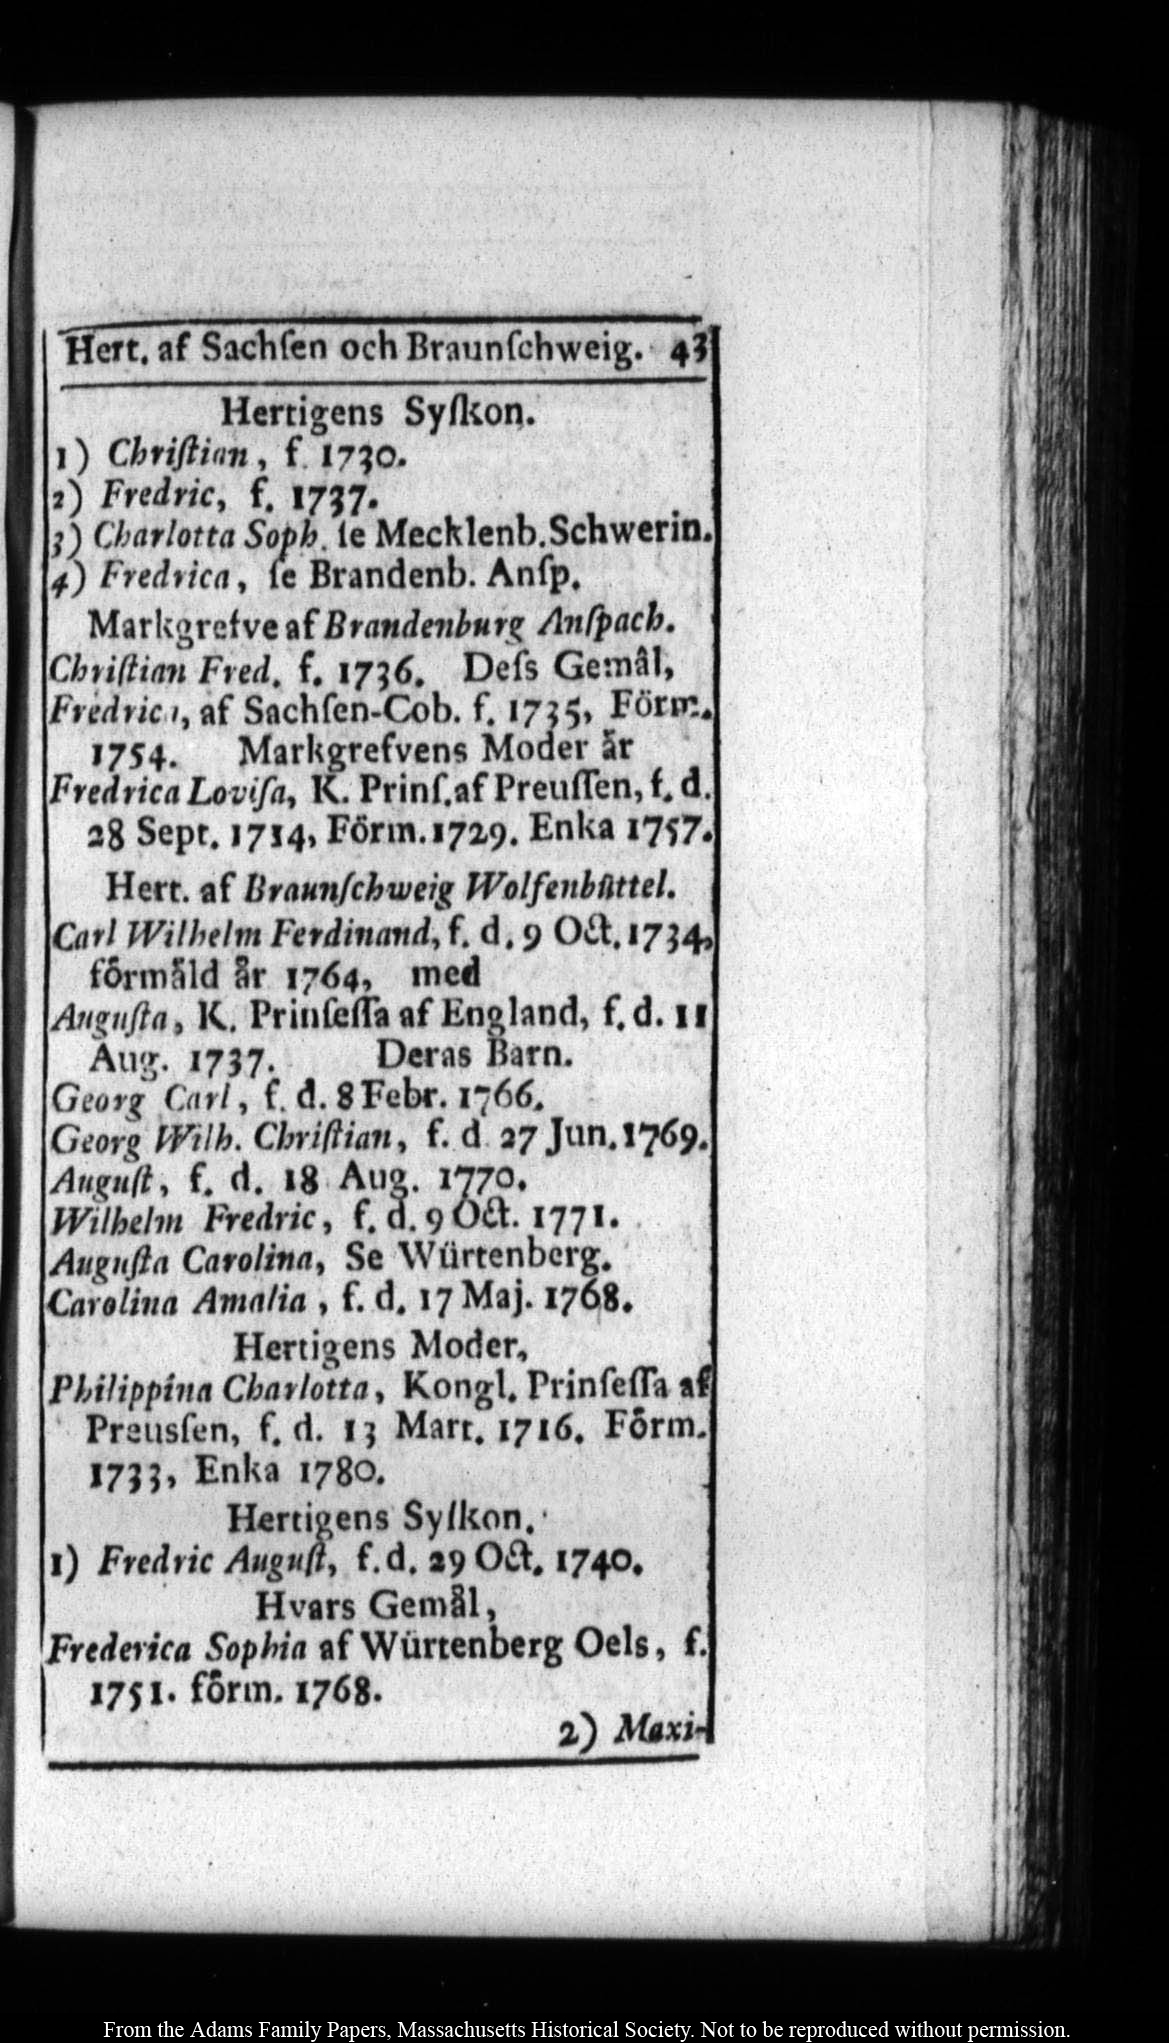 Hert. af Sachſen och Braunſchweig. 43
Hertigens Syſkon.
1) Chriſtian, f. 1730.
2) Fredric, f. 1737.
3) Charlotta Soph. ſe Mecklenb. Schwerin.
4) Fredrica, ſe Brandenb. Anſp.
Markgrefve af Brandenburg Anſpach.
Chriſtian Fred. f. 1736. Deſs Gemål,
Fredrica, af Sachſen-Cob. f. 1735, Förm.
1754. Markgrefvens Moder år
Fredrica Loviſa, K. Prinſ. af Preuſſen, f. d.
28 Sept. 1714, Förm. 1729. Enka 1757.
Hert. af Braunſchweig Wolfenbüttel.
Carl Wilhelm Ferdinand, f. d. 9 Oct. 1734,
förmäld år 1764, med
Auguſta, K. Prinſeſſa af England, f. d. 11
Aug. 1737. Deras Barn.
Georg Carl, f. d. 8 Febr. 1766.
Georg Wilh. Chriſtian, f. d. 27 Jun. 1769.
Auguſt, f. d. 18 Aug. 1770.
Wilhelm Fredric, f. d. 9 Oct. 1771.
Auguſta Carolina, Se Würtenberg.
Carolina Amalia, f. d. 17 Maj. 1768.
Hertigens Moder,
Philippina Charlotta, Kongl. Prinſeſſa af
Preusſen, f. d. 13 Mart. 1716. Förm.
1733, Enka 1780.
Hertigens Syſkon.
1) Fredric Auguſt, f. d. 29 Oct. 1740.
Hvars Gemål,
Frederica Sophia af Würtenberg Oels, f.
1751. förm. 1768.
2) Maxi-
From the Adams Family Papers, Massachusetts Historical Society. Not to be reproduced without permission.